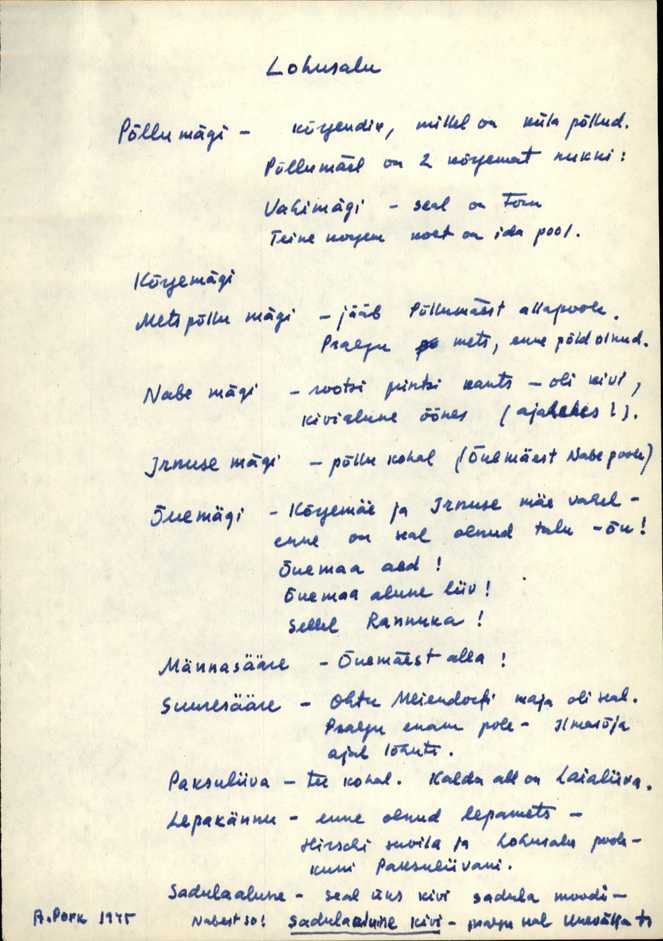 Lohusalu
Põllumägi - kõrgendik, millel on küla põllud.
Põllumäel on 2 kõrgemat nukki:
Vahimägi - seal on torn
Teine kõrgem koht on ida pool.
Kõrgemägi
Metspõllu mägi - jääb Põllumäest allapoole.
Praegu mets, enne põld olnud.
Nabe mägi - rootsi kants - oli kivi,
kivialune õõnes
Irnuse mägi - põllu kohal (Õuemäest Nabe poole)
Õuemägi - Kõrgemäe ja Irnuse mäe vahel -
enne on seal olnud talu - Õu!
Õuemaa aed!
Õuemaa alune liiv!
Sellel Rannuka!
Männasääre - Õuemäest alla!
Suuresääre - Ohtu Meiendorfi maja oli seal.
Praegu enam pole - Ilmasõja
ajal lõhuti.
Paksuliiva - tee kohal. Kalda all on Laialiiva.
Lepakännu - enne olnud lepamets -
Hirschi suvila ja Lohusalu poole -
kuni Paksuliivani.
Sadulaaluse - seal üks kivi sadula moodi -
Nabest SO! Sadulaaluse kivi - praegu seal